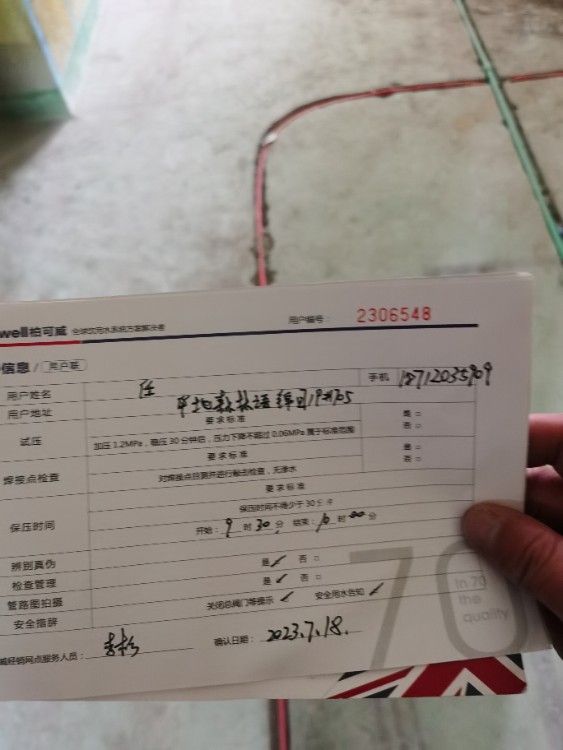 well柏可威 全球饮用水系统方案解决者 用户编号： 2306548
信息 / 用户联
用户姓名 任 手机 18712035909
用户地址 中地森林语
试压 要求标准 是 □
加压 1.2MPa，稳压 30 分钟后，压力下降不超过 0.06MPa 属于标准范围 否 □
焊接点检查 要求标准 是 □
对焊接点目测并进行敲击检查，无渗水 否 □
保压时间 要求标准
保压时间不得少于 30 分钟
开始： 9 时 30 分 结束： 10 时 00 分
辨别真伪 是 ✓ 否 □
检查管理 是 ✓ 否 □
管路图拍摄
安全措辞 关闭总阀门等提示 ✓ 安全用水告知 ✓
威经销网点服务人员： 确认日期： 2023.7.18.
70
In 70
the
quality